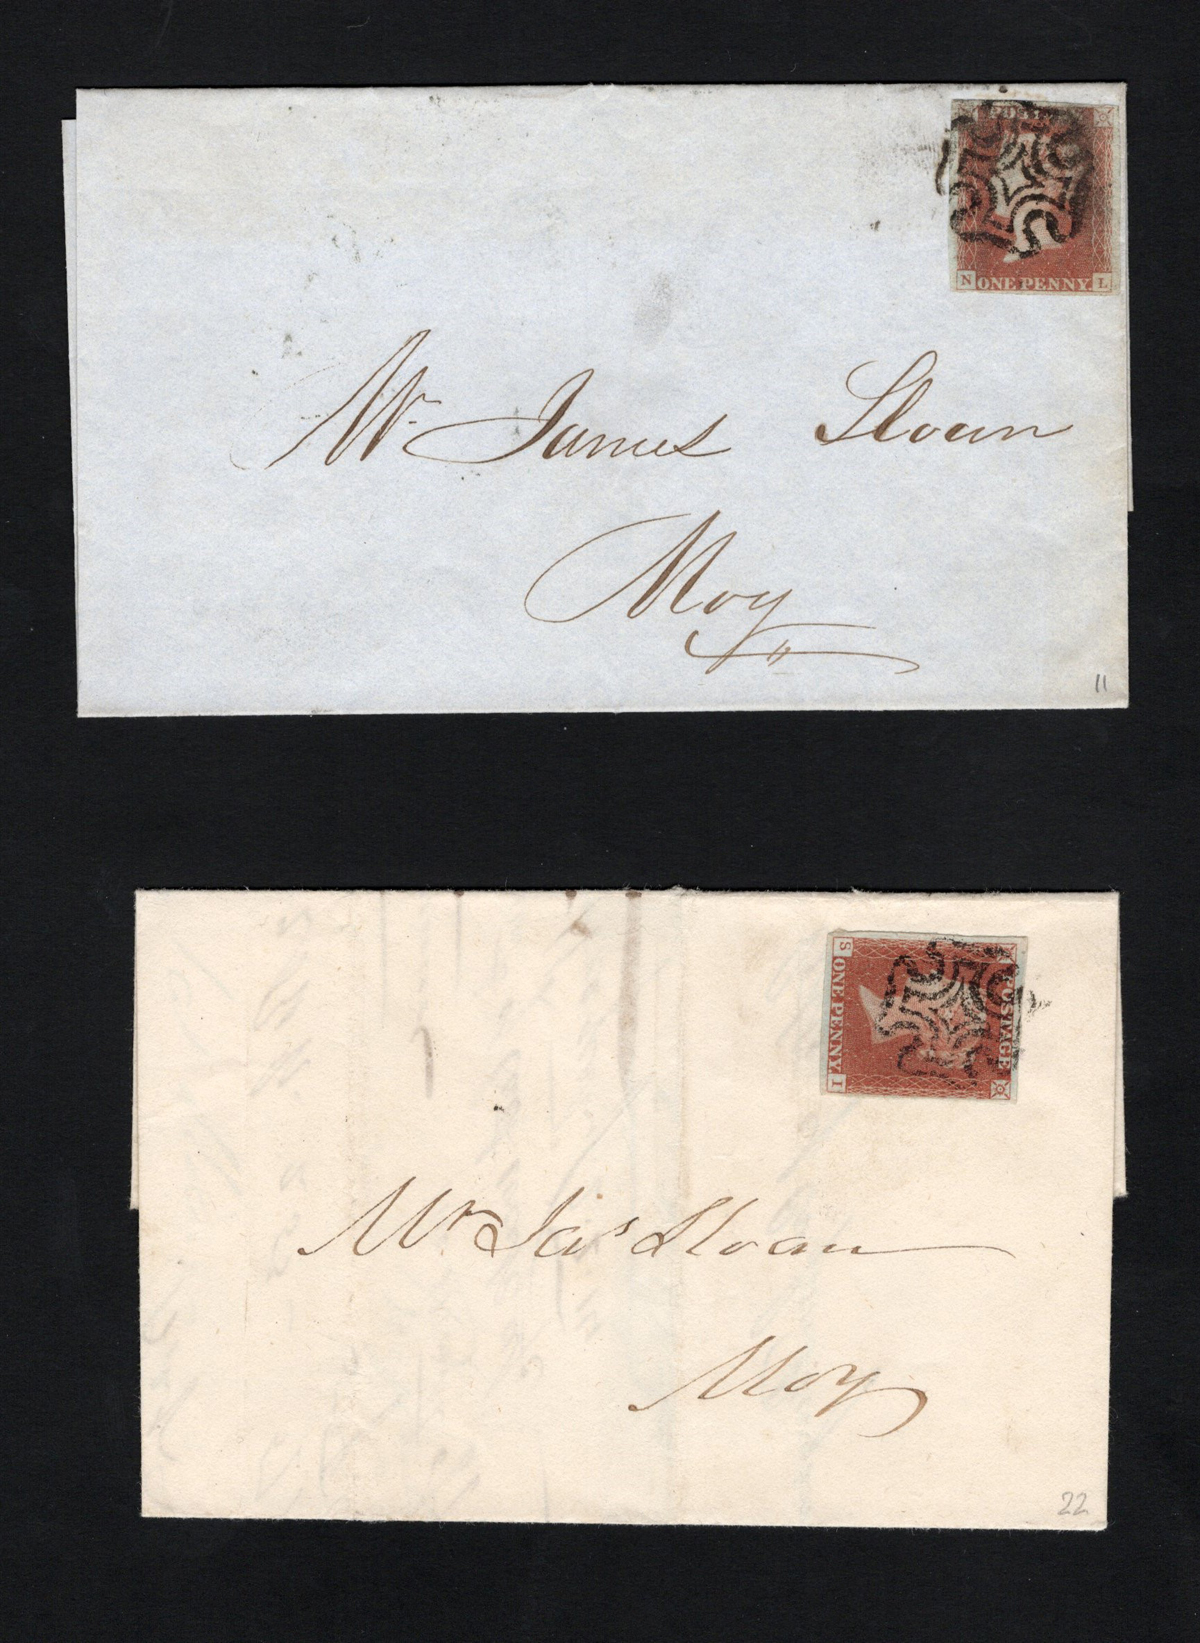 POST
N ONE PENNY L
Mr James Sloan
Moy
11
POSTAGE
S ONE PENNY I
Mr Jas Sloan
Moy
22